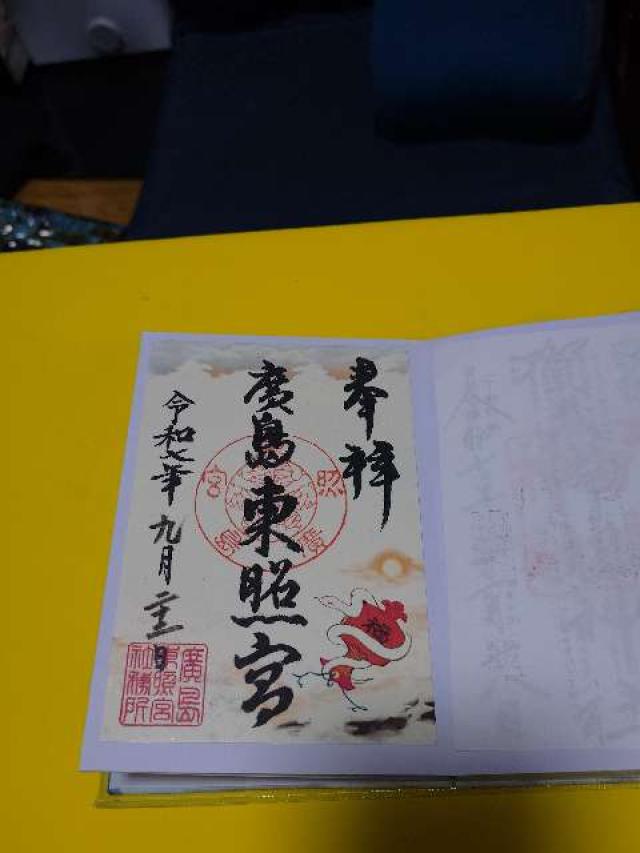 奉拝
廣島東照宮
令和七年九月 日
廣島
東照宮
社務所